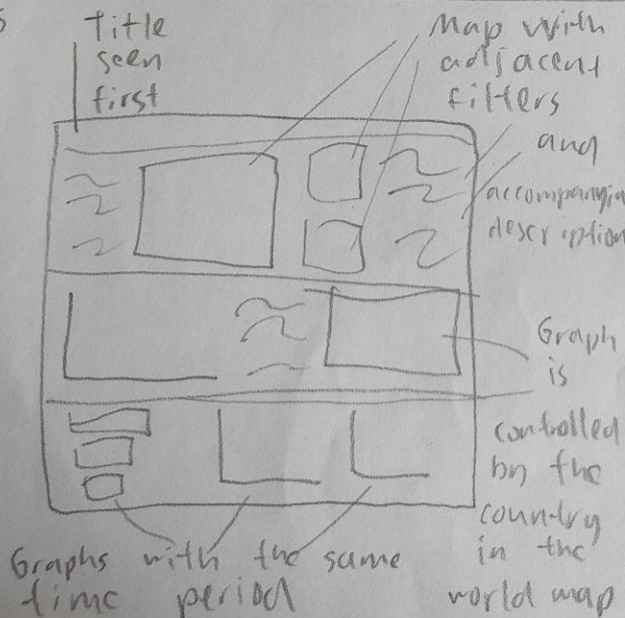 Title
seen
first
Map with
adjacent
filters
and
accompanyin
description
Graph
is
controlled
by the
country
in the
world map
Graphs with the same
time period